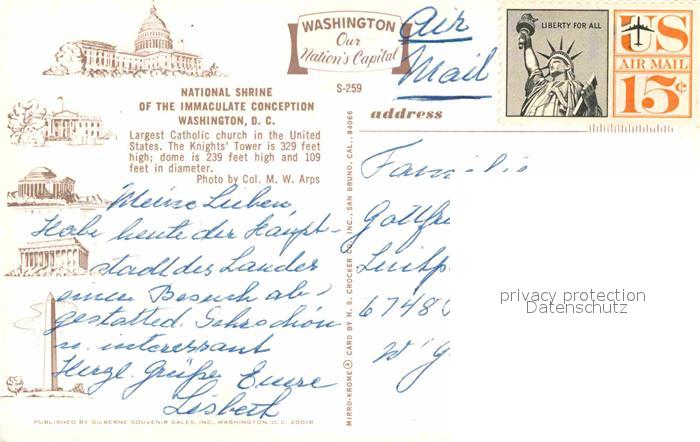 WASHINGTON
Our
Nation's Capital
S-259
Air
Mail
LIBERTY FOR ALL
US
AIR MAIL
15¢
NATIONAL SHRINE
OF THE IMMACULATE CONCEPTION
WASHINGTON, D. C.
Largest Catholic church in the United
States. The Knights' Tower is 329 feet
high; dome is 239 feet high and 109
feet in diameter.
Photo by Col. M. W. Arps
Meine Lieben
Habe heute der Haupt-
stadt des Landes
einen Besuch ab-
gestatted. Sehr schön
u. interessant
Herzl. Grüße Eure
Lisbeth
PUBLISHED BY SILBERNE SOUVENIR SALES, INC., WASHINGTON, D. C. 20018
MIRRO-KROME® CARD BY H. S. CROCKER CO., INC., SAN BRUNO, CAL., 94066
address
Familie
Gottfr
Luitp
6748
W
privacy protection
Datenschutz